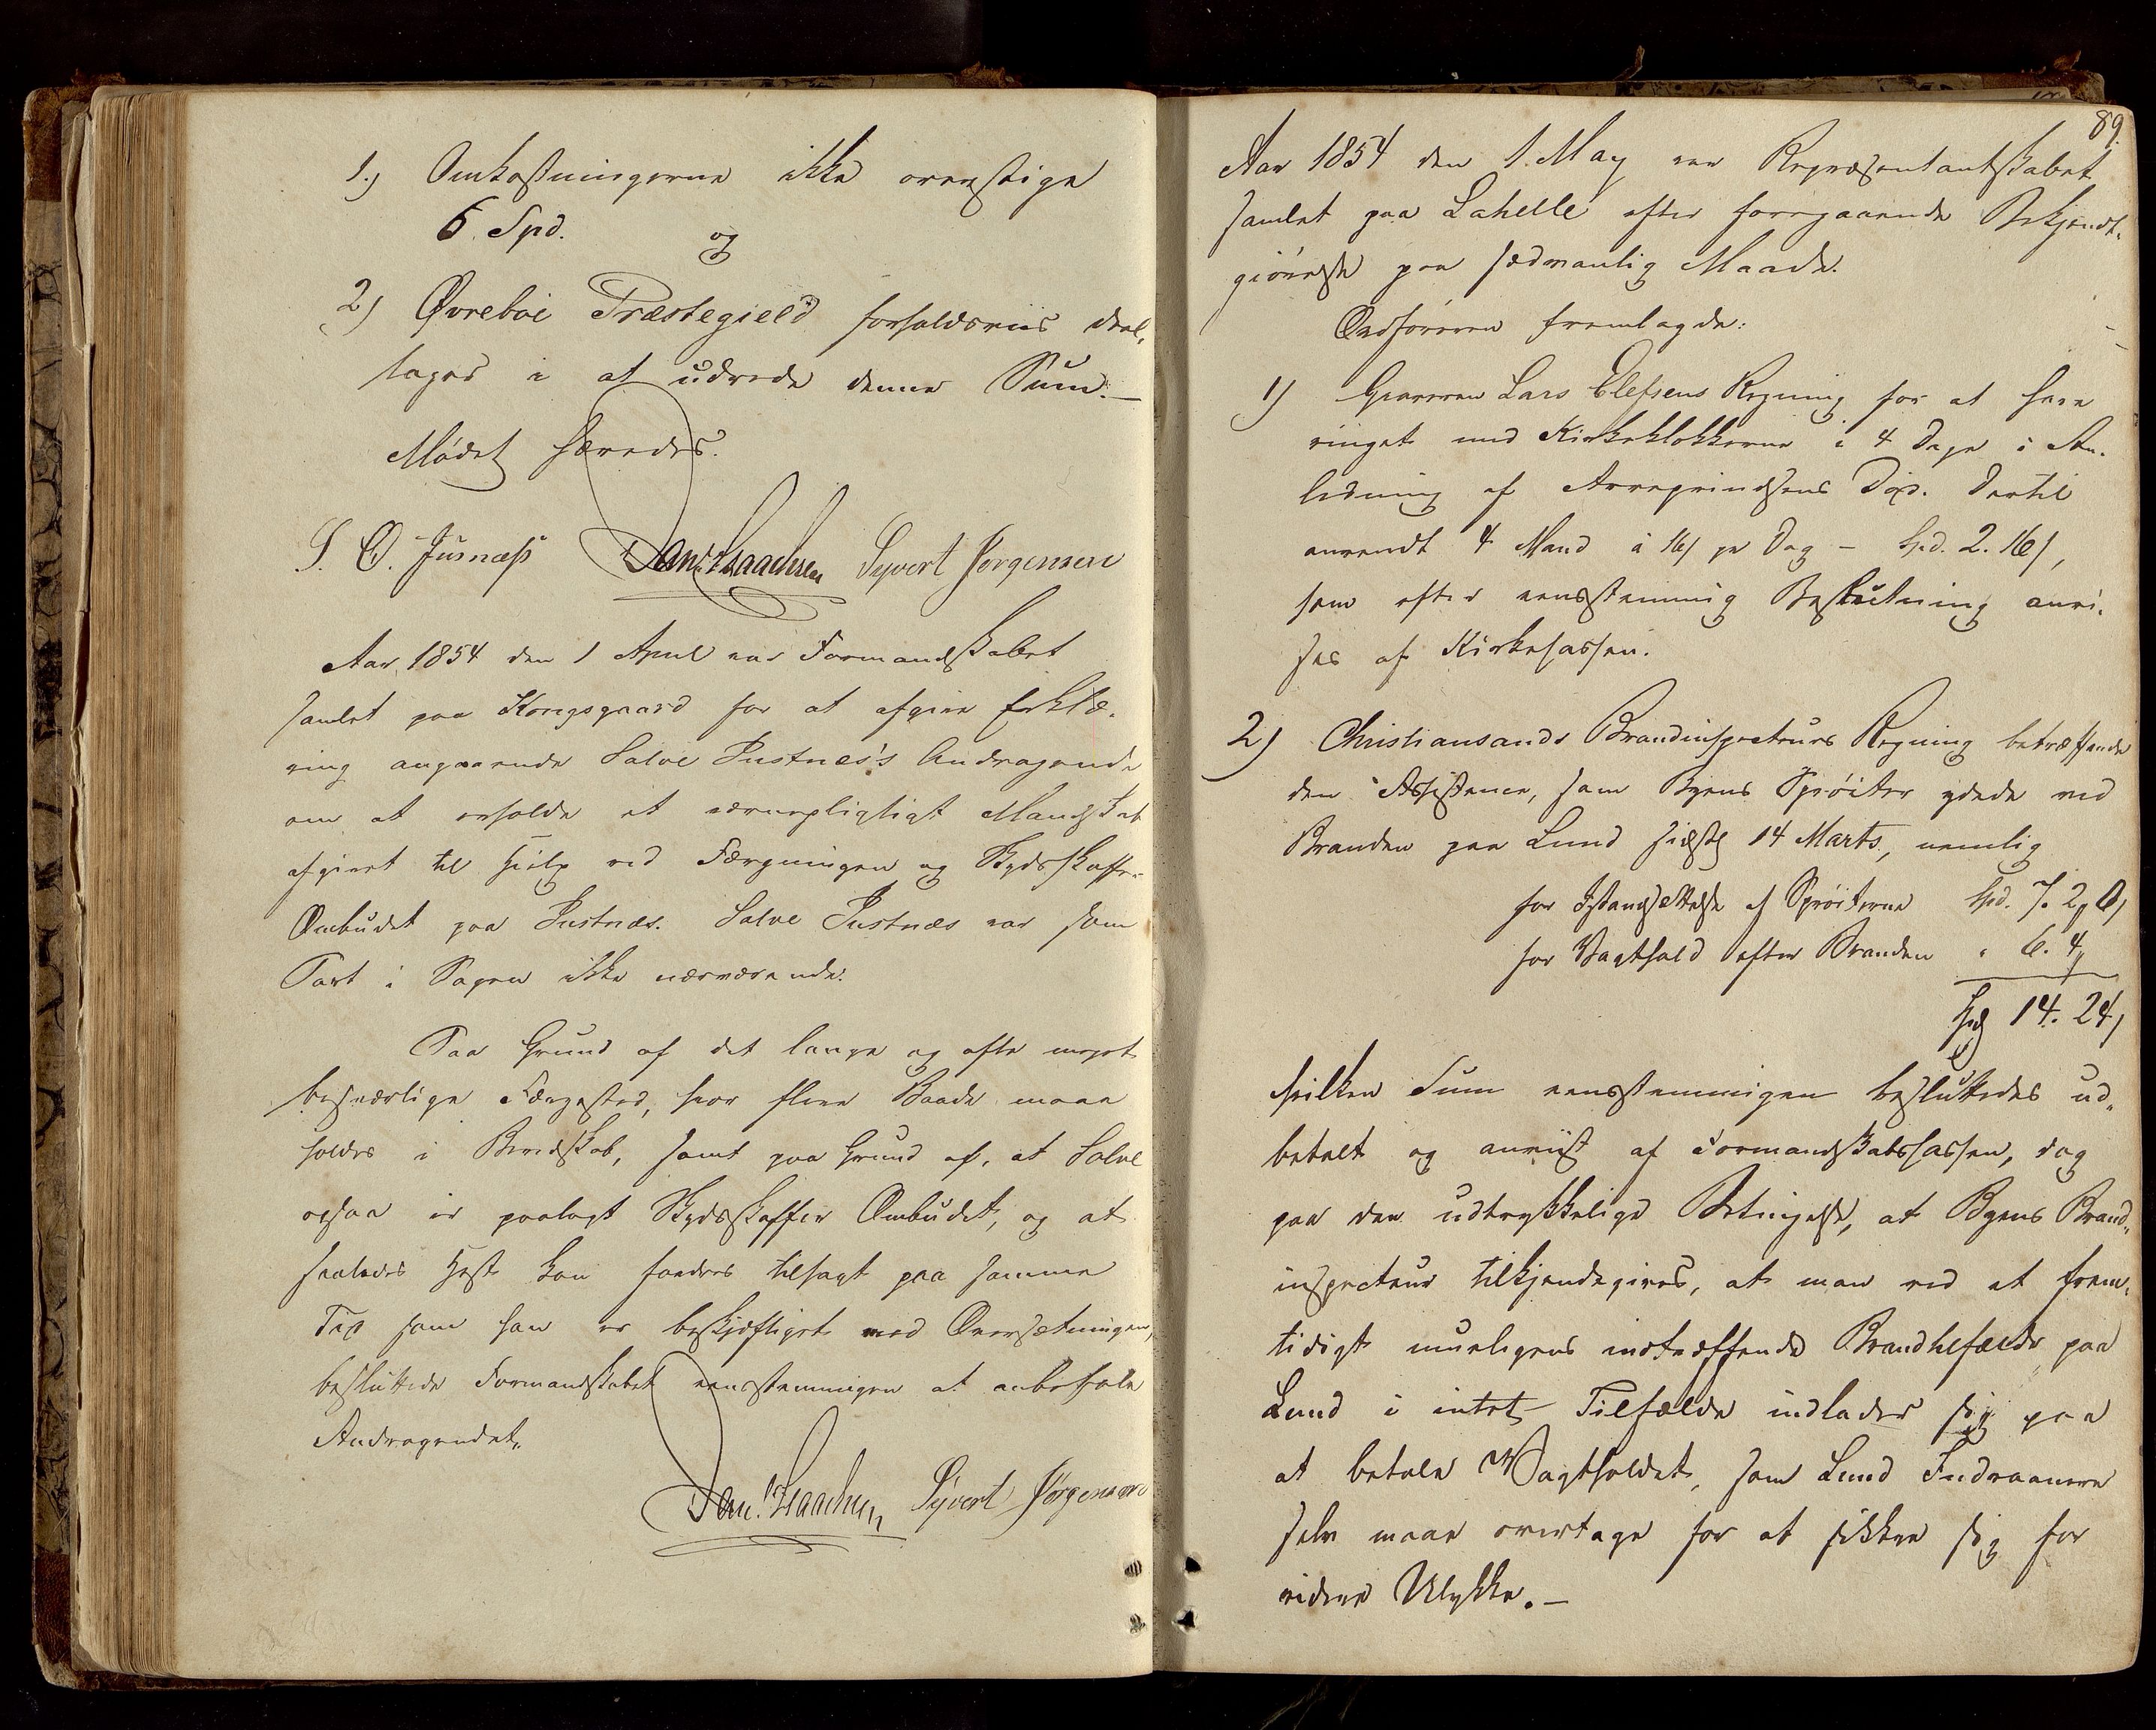 1.) Omkostningerne ikke overstige
6 Spd.
og
2) Øvrebøe Præstegield forholdsviis deel,
tages i at udrede denne Sum. –
Mødet hævedes.
S. O. Jusnæss Dan. Isaachsen Syvert Jörgensen
Aar 1854 den 1 April var Formandskabet
samlet paa Kongsgaard for at afgive Erklæ,
ring angaaende Salve Justnes's Andragende
om at erholde et værnepligtigt Mandskab
afgivet til Hielp ved Færgningen og Skydsskaffer
Ombudet paa Justnæs. Salve Justnæs var som
Part i Sagen ikke nærværende.
Paa Grund af det lange og ofte meget
besværlige Færgested, hvor flere Baade maae
holdes i Beredskab, samt paa Grund af, at Salve
ogsaa er paalagt Skydsskaffer Ombudet, og at
saaledes Hest kan saadres tilsagt paa samme
Tid som han er beskjæftiget med Oversætningen,
besluttede Formandskabet eensstemmigen at anbefale
Andragendet.
Dan. Isaachsen Syvert Jörgensen
89.
Aar 1854 den 1. May var Repræsentantskabet
samlet paa Lahelle efter foregaaende Bekjendt,
giørelse paa sædvanlig Maade.
Ordføreren fremlagde:
1) Graveren Lars Elefsens Regning for at have
ringet med Kirkeklokkerne i 4 Dage i An,
ledning af Arveprindsens Død. Dertil
anvendt 4 Mand à 16/ pr Dag – Spd. 2. 16/,
som efter eensstemmig Beslutning anvi,
ses af Kirkecassen.
2) Christiansands Brandinspecteurs Regning betræffende
den Assistence, som Byens Sprøiter ydede ved
Branden paa Lund sidste 14 Marts, nemlig
for Istandsættelse af Sprøiterne Spd. 7. 2, 0,
for Vagthold efter Branden " 6. 4,
Spd 14. 24,
hvilken Sum eensstemmigen besluttedes ud,
betalt og anviist af Formandskabscassen, dog
paa den udtrykkelige Betingelse, at Byens Brand,
inspecteur tilkjendegives, at man ved et frem,
tidigt mueligens indtræffende Brandtilfælde paa
Lund i intet Tilfælde indlader sig paa
at betale Vagtholdet, som Lund Indvaanere
selv maae overtage for at sikkre sig for
videre Ulykke. –